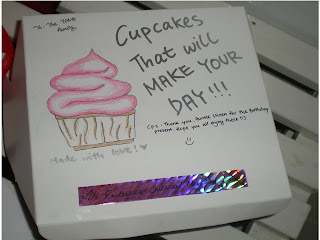 To: The
Family
CUPCAKES
THAT will
MAKE YOUR
DAY!!!
(P.S. Thank you, Auntie for the Birthday
present. Hope you all enjoy these!:)
Made with love!